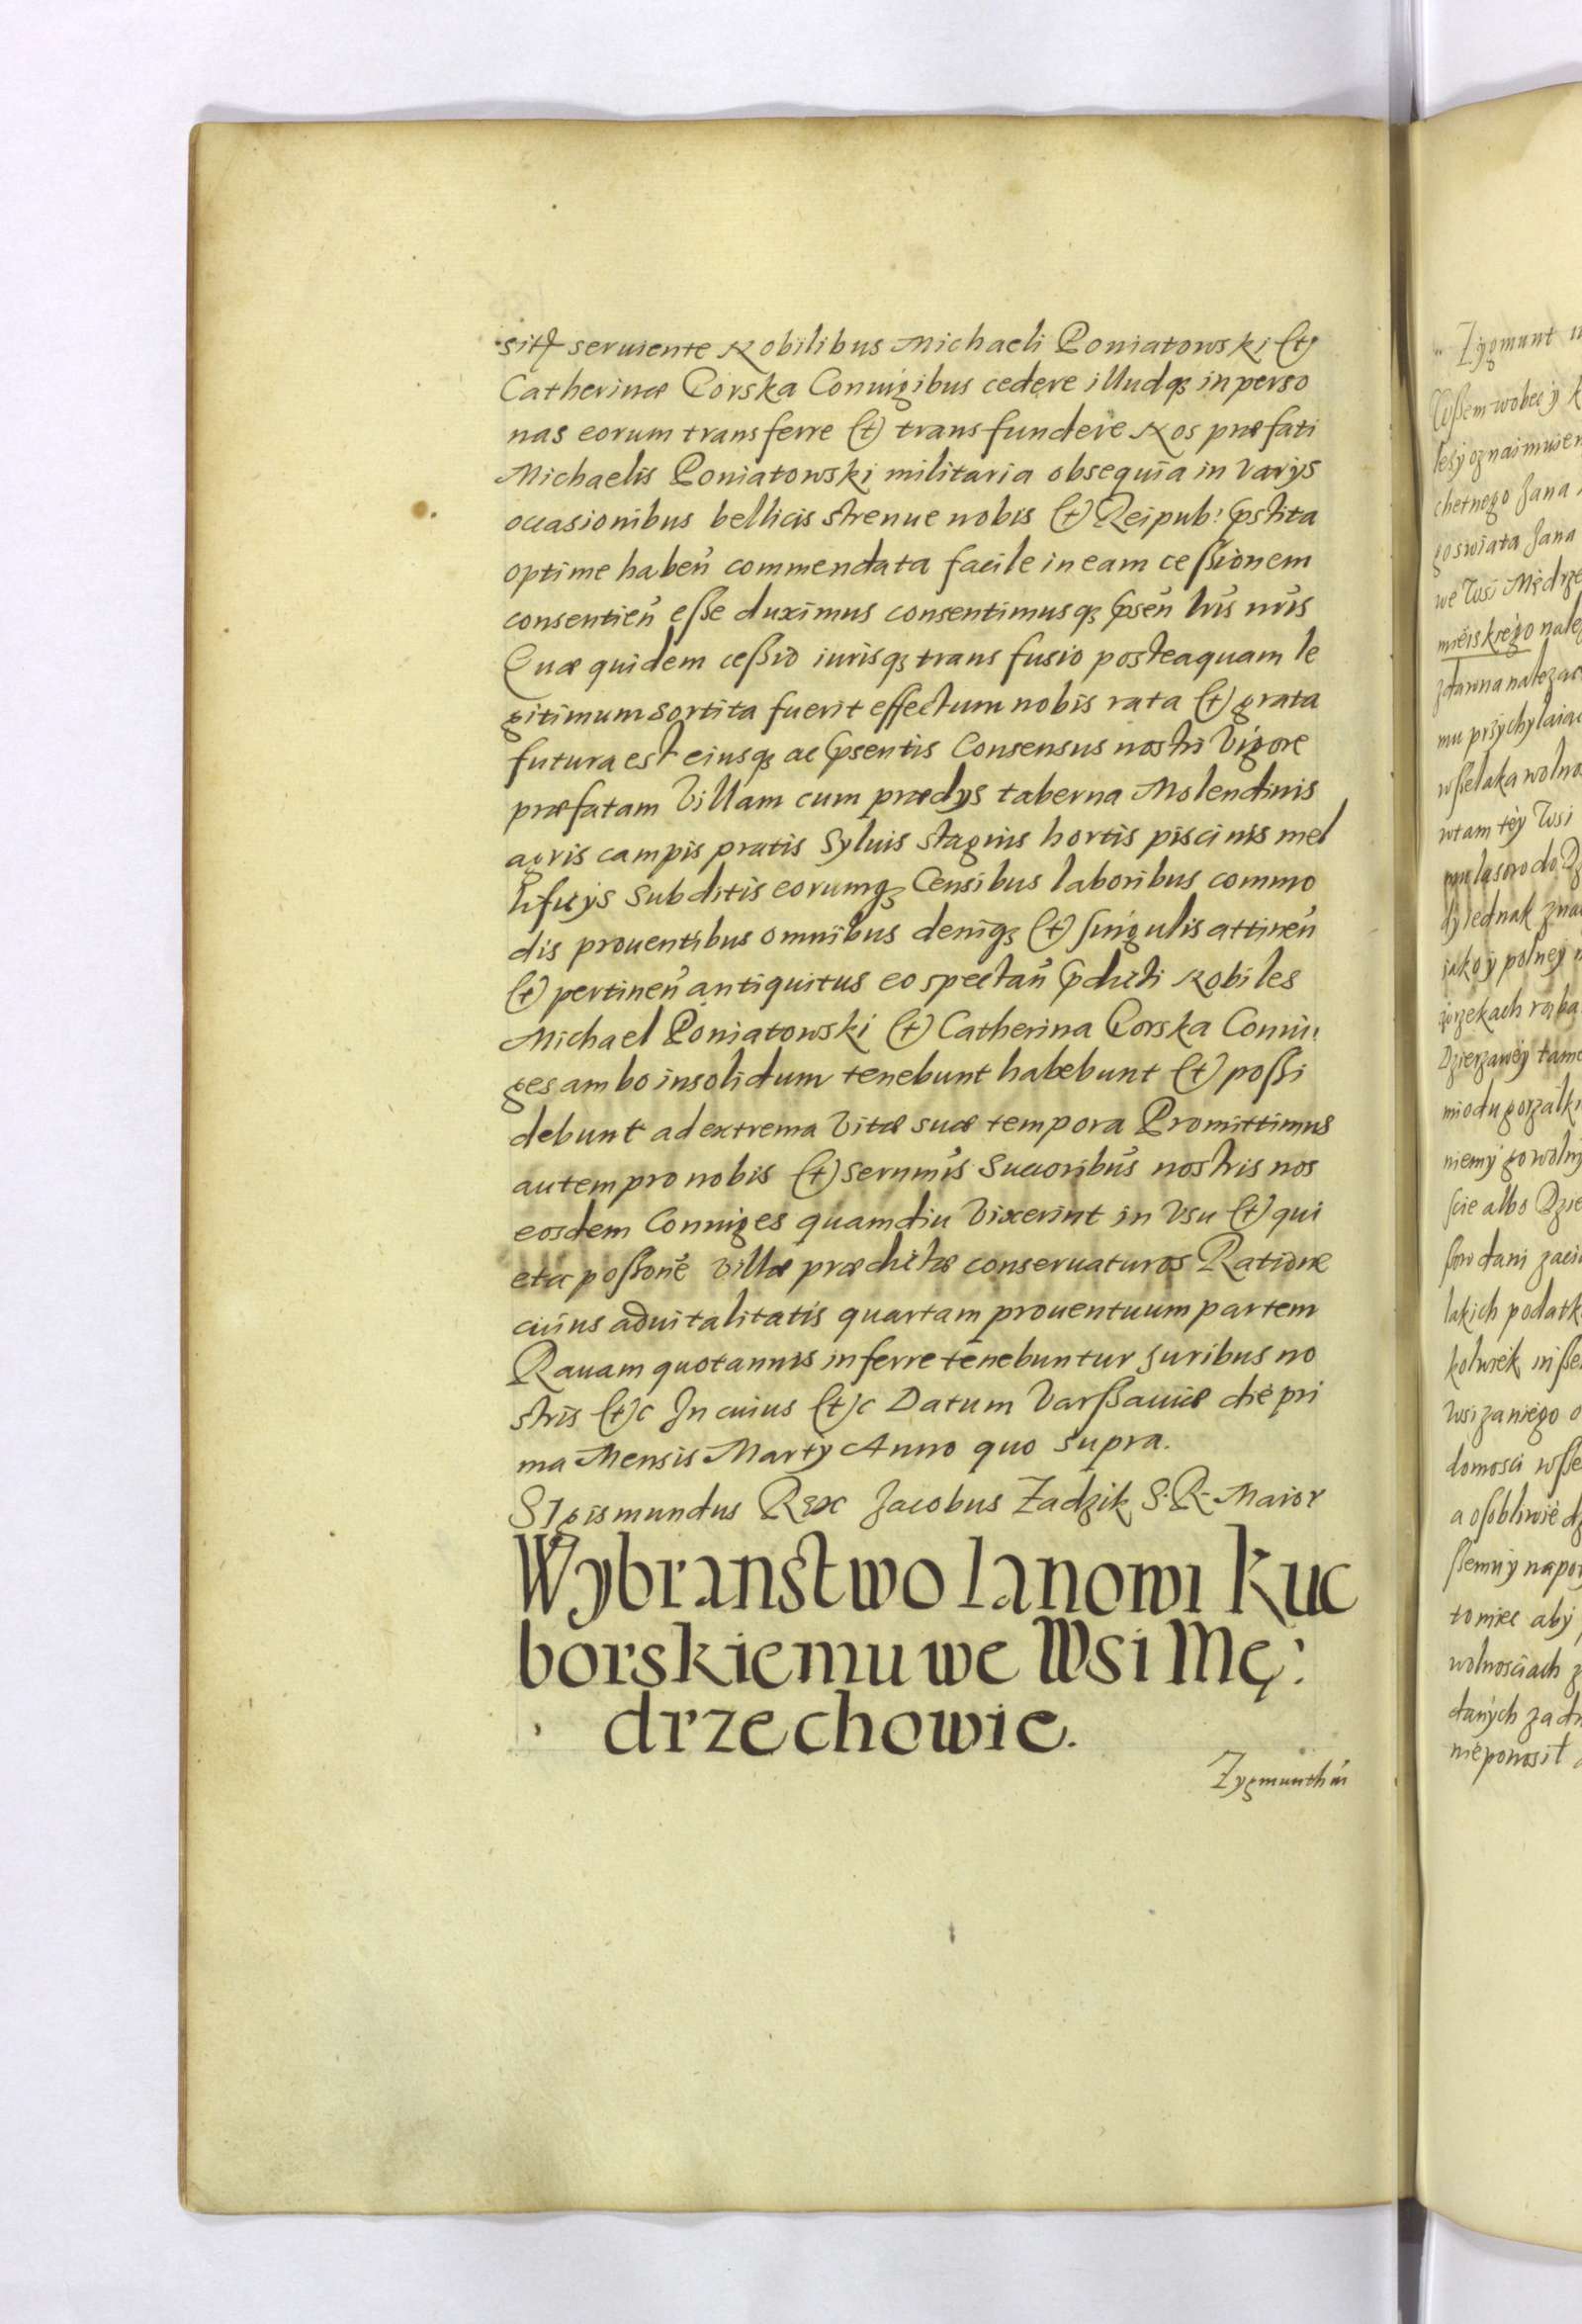 sitq seruiente Nobilibus Michaeli Poniatowski et
Catherinæ Gorska Coniugibus cedere illudqꝫ in perso
nas eorum transferre et transfundere Nos præfati
Michaelis Poniatowski militaria obsequia in varÿs
occasionibus bellicis strenue nobis et Reipub: pstita
optime habeń commendata facile in eam ceßionem
consentień eße duximus consentimusqꝫ pseń lris nris
Quæ quidem ceßio iurisqꝫ transfusio posteaquam le
gitimum sortita fuerit effectum nobis rata et grata
futura est eiusqꝫ ac psentis Consensus nostri vigore
præfatam Villam cum prædÿs taberna Molendinis
agris campis pratis Syluis stagnis hortis piscinis mel
lificÿs subditis eorumqꝫ Censibus laboribus commo
dis prouentibus omnibus deniqꝫ et singulis attineń
et pertineń antiquitus eo spectań pdicti Nobiles
Michael Poniatowski et Catherina Gorska Coniu:
ges ambo insolidum tenebunt habebunt et poßi
debunt ad extrema vitæ suæ tempora Promittimus
autem pro nobis et Sernmis Succoribus nostris nos
eosdem Coniuges quamdiu vixerint in vsu et qui
eta poßone villæ prædictæ conseruaturos Ratione
cuius aduitalitatis quartam prouentuum partem
Rauam quotannis inferre tenebuntur Juribus no
stris etc In cuius etc Datum Varßauiæ die pri
ma Mensis Martÿ Anno quo supra.
Sigismundus Rex Jacobus Zadzik S. R. Maior
Wybranstwo Ianowi Kuc
borskiemu we Wsi Mę:
drzechowie.
Zygmunth
Zygmunt
wobec ÿ
chetnego Jana
goswiata Jana
we Wsi Mędrze
mieiskiego nale
mu przÿchylaiac
wßelaka wolno
wtam teÿ Wsi
dÿ iednak zna
iako ÿ polneÿ
Dzierzaweÿ tame
miodu gorzałki
niemÿ go wolnÿ
scie albo Dzie
lakich podatk
kolwiek inße
Wsi za niego o
domosci wße
a osobliwie dz
ßemu ÿ napo
to miec abÿ
wolnosciach
danÿch za dn
nieponosił